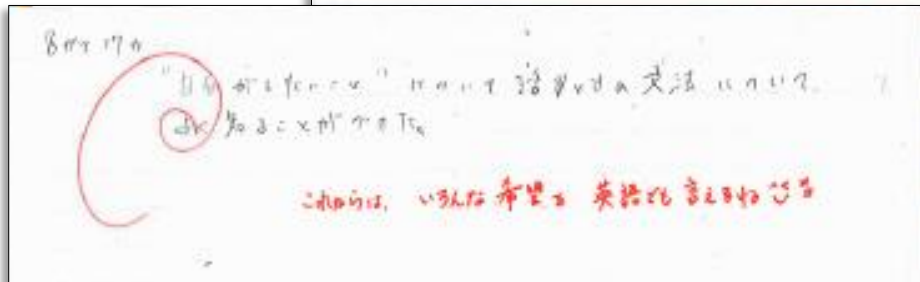 8月17日
"自分がしたいこと" について話すときの文法について
よく知ることができた。
これからは、いろんな希望を英語でも言えるね